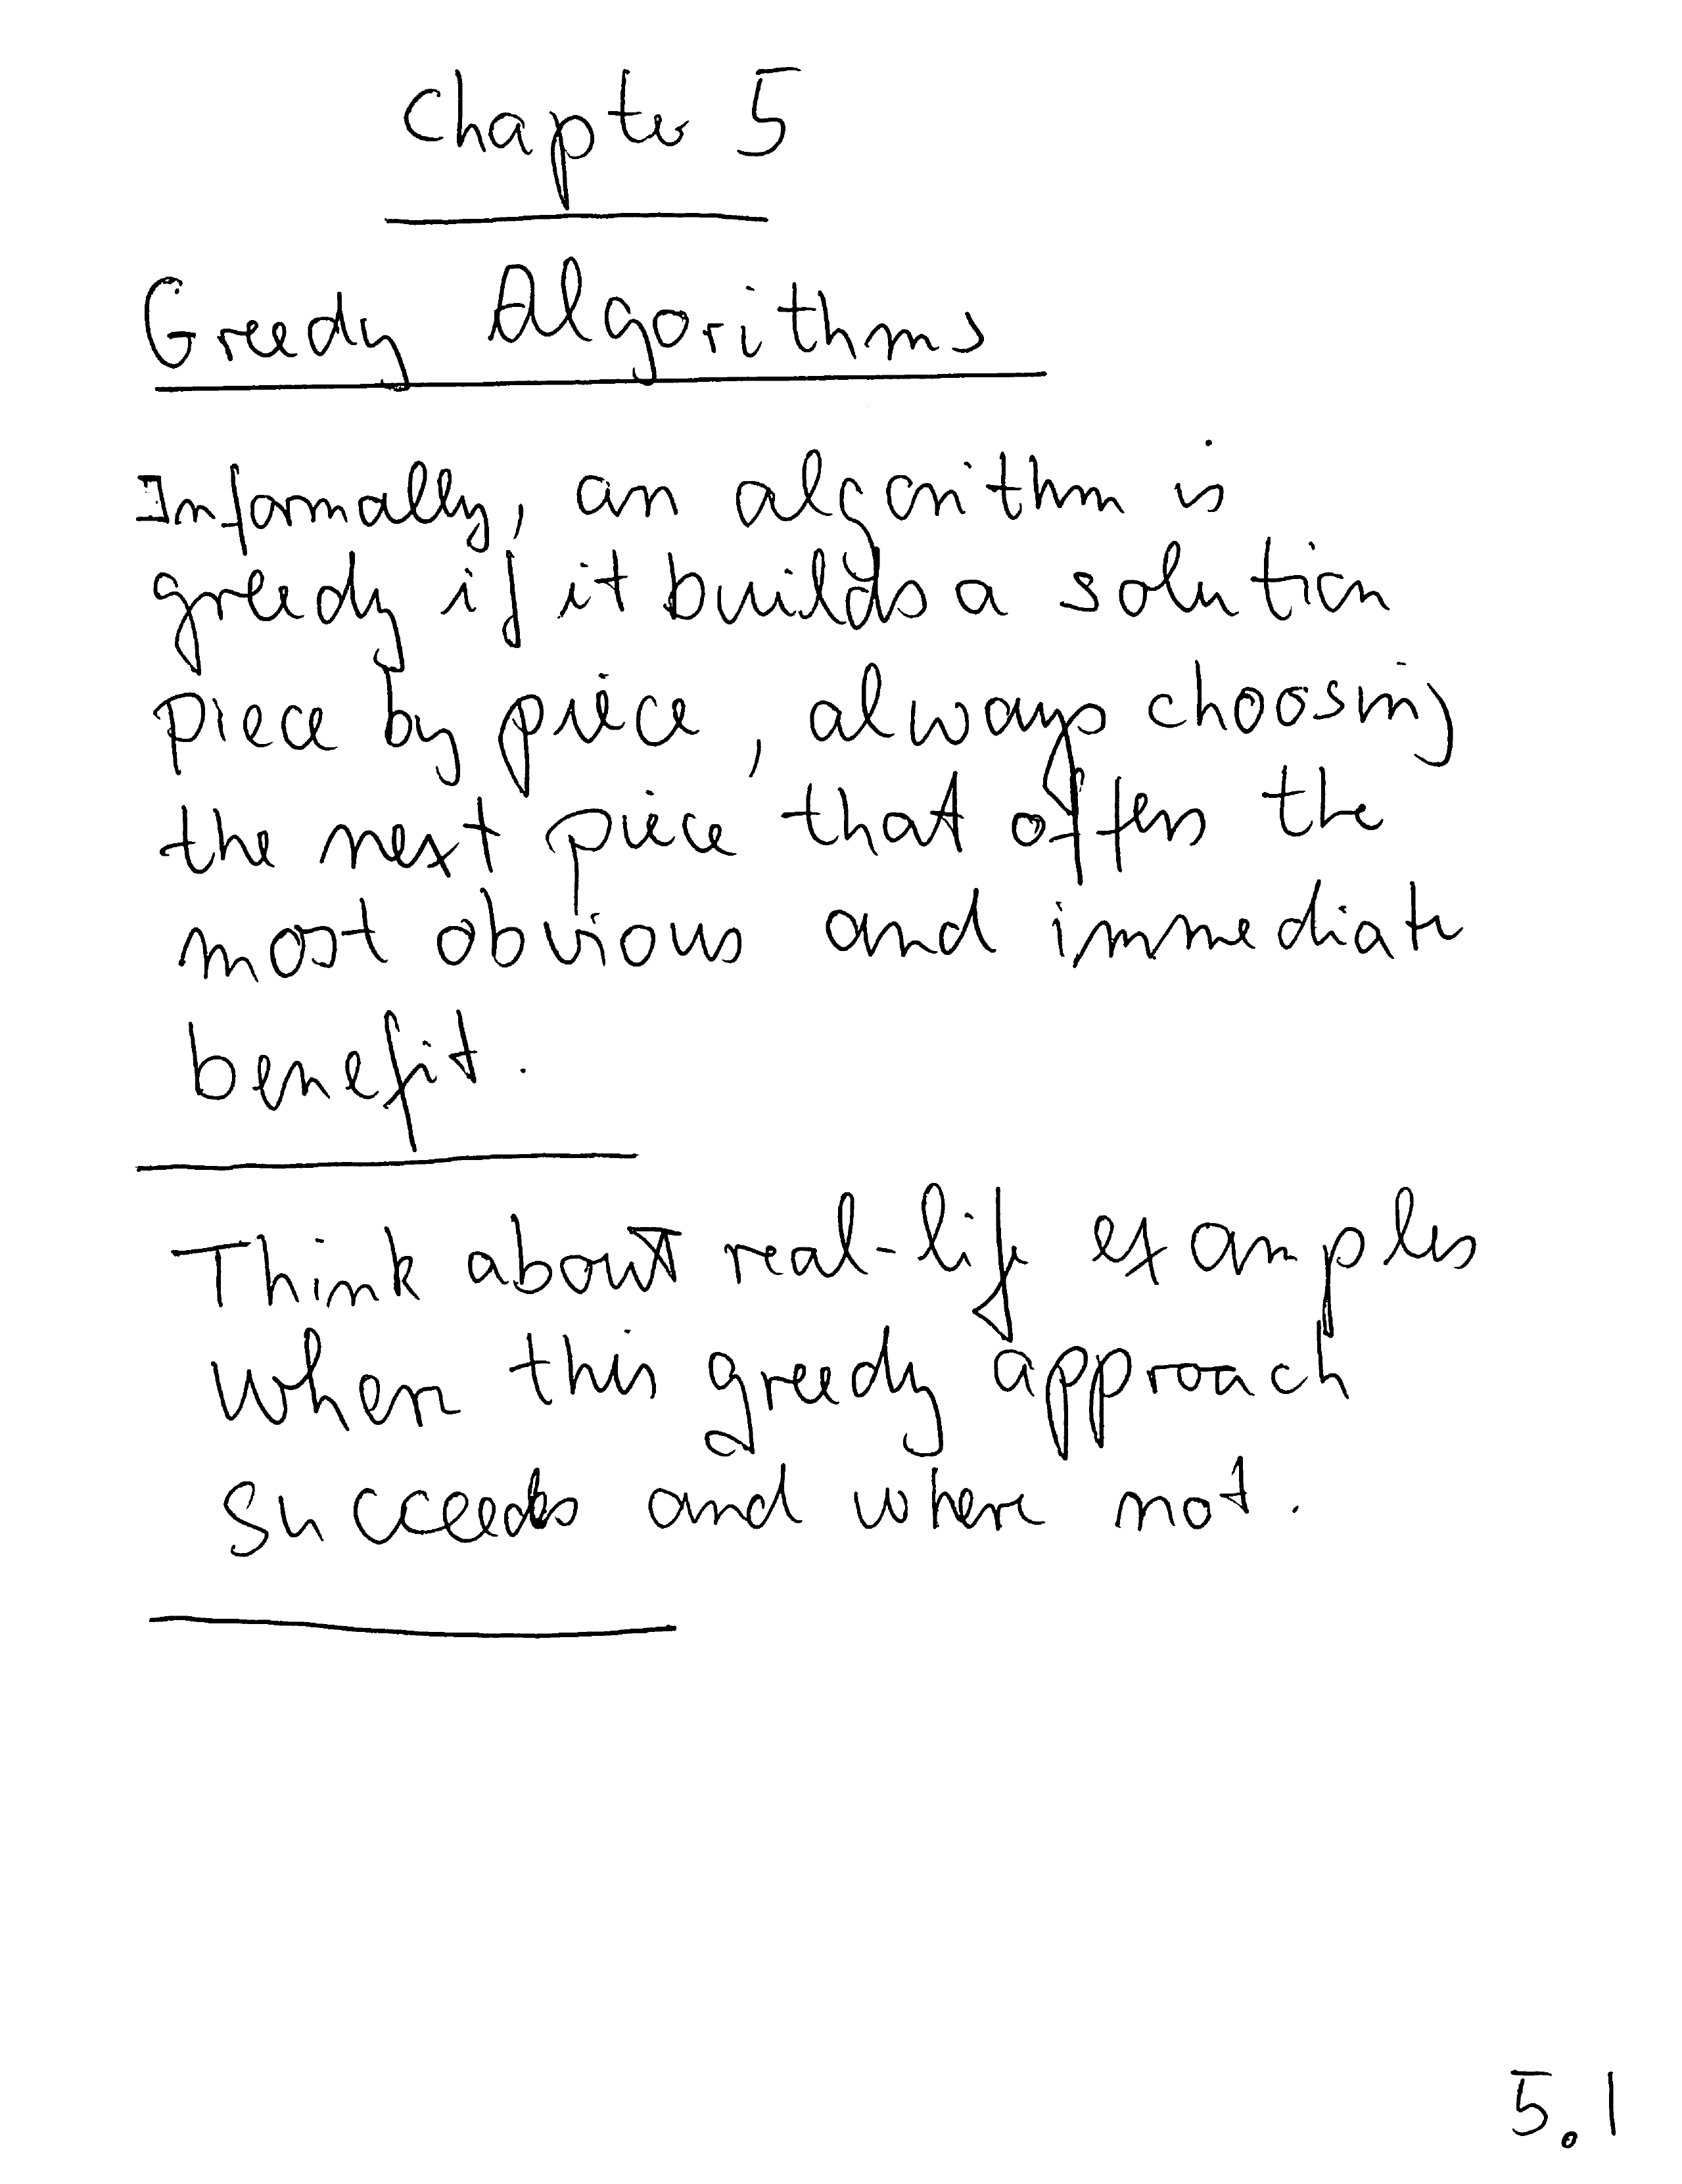 Chapter 5
Greedy Algorithms
Informally, an algorithm is
greedy if it builds a solution
piece by piece, always choosing
the next piece that offers the
most obvious and immediate
benefit.
Think about real-life examples
where this greedy approach
succeeds and where not.
5.1